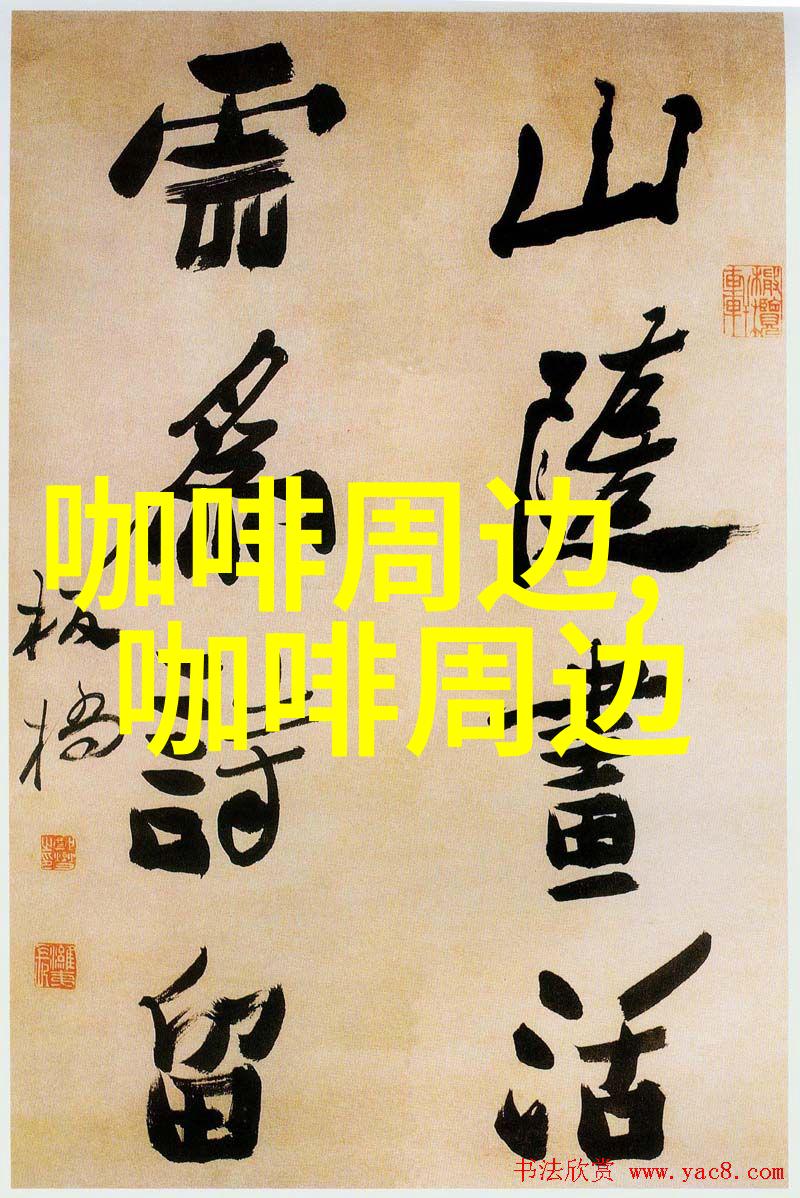 山隨畫活
雲為詩留
板橋
咖啡周边,
咖啡周边
书法欣赏 www.yac8.com